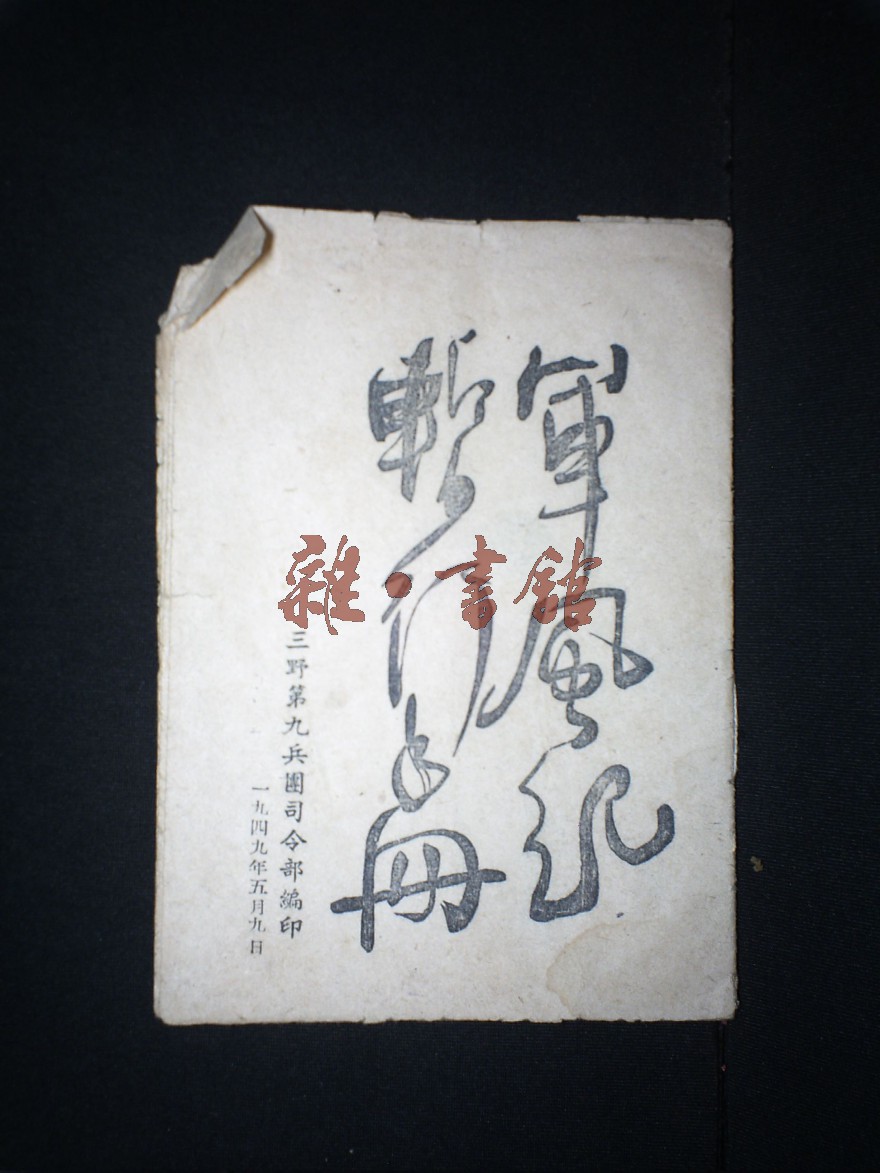 軍風紀
暫行手册
三野第九兵團司令部編印
一九四九年五月九日
雜·書館